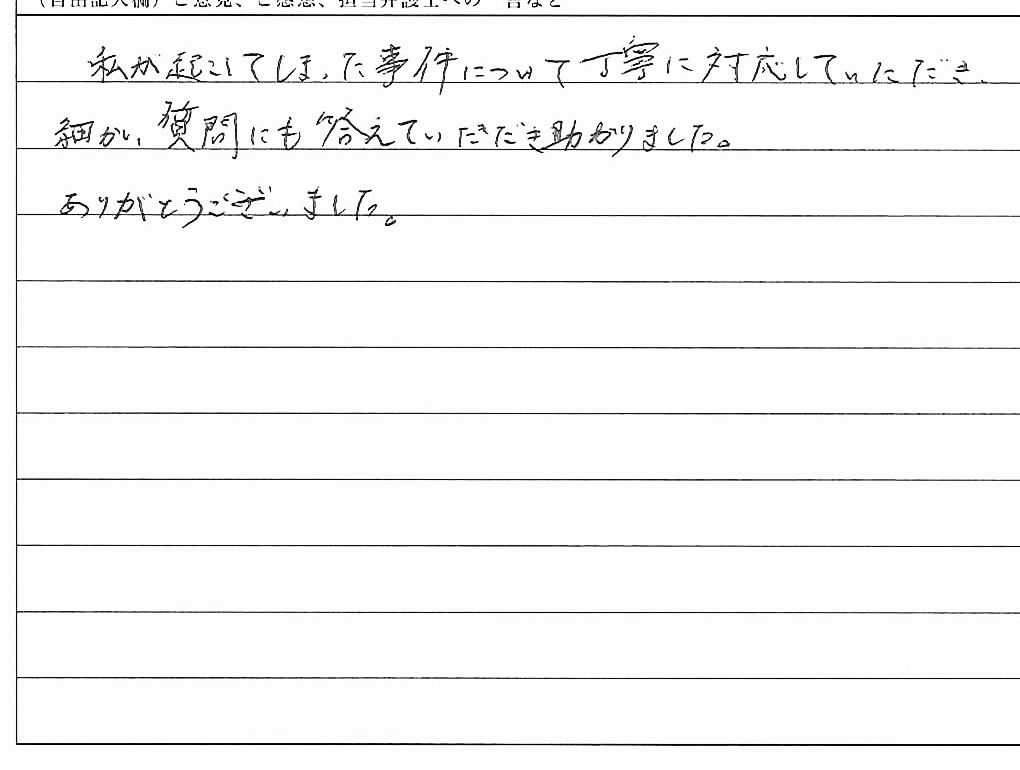 （自由記入欄）ご意見、ご感想、担当弁護士への一言など
私が起こしてしまった事件について丁寧に対応していただき、
細かい質問にも答えていただだき助かりました。
ありがとうございました。